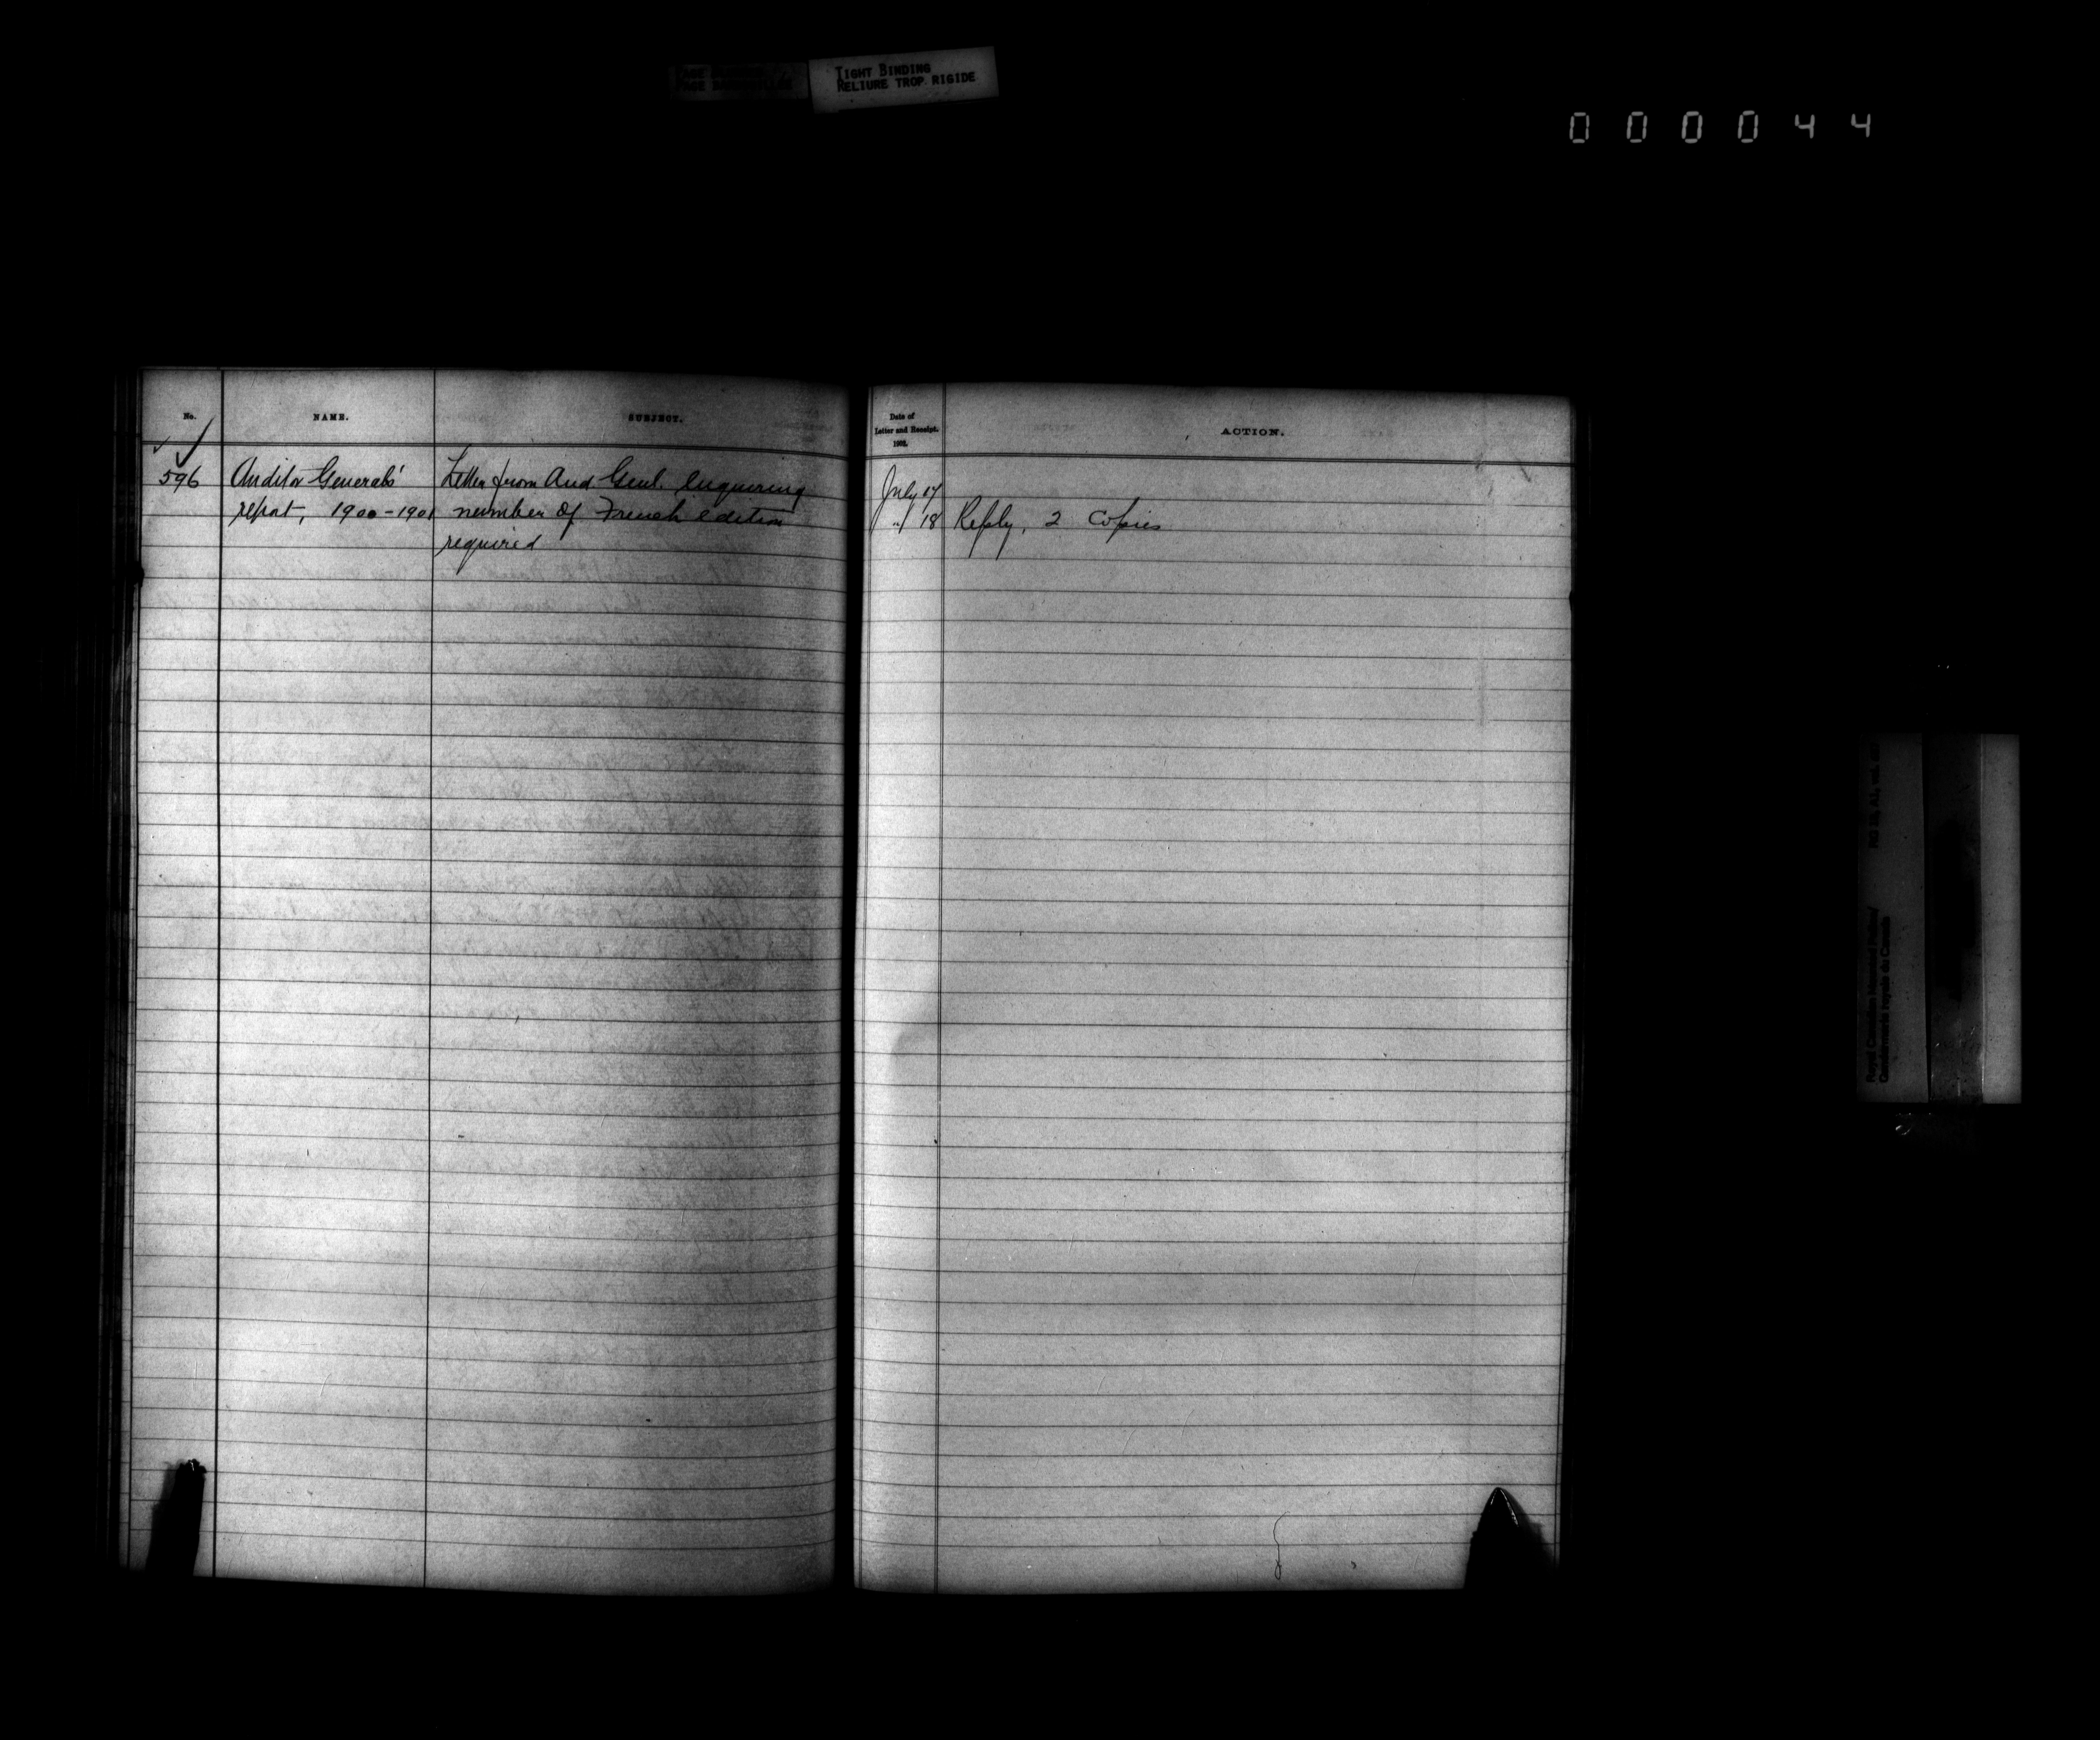 TIGHT BINDING
RELIURE TROP RIGIDE
000044
No.
NAME.
SUBJECT.
Date of
Letter and Receipt.
1902.
ACTION.
596
Auditor Generals'
report, 1900-1901
Letter from Aud. Genl. enquiring
number of French edition
required
July 17
" 18 Reply, 2 Copies
Royal Canadian Mounted Police/
Gendarmerie royale du Canada